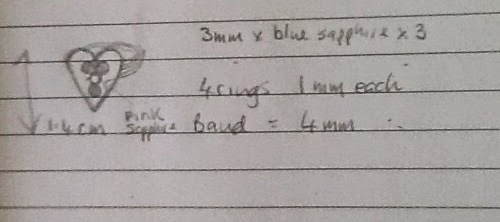 3mm x blue sapphire x 3
4 rings 1mm each
1.4cm Pink Sapphire Band = 4mm